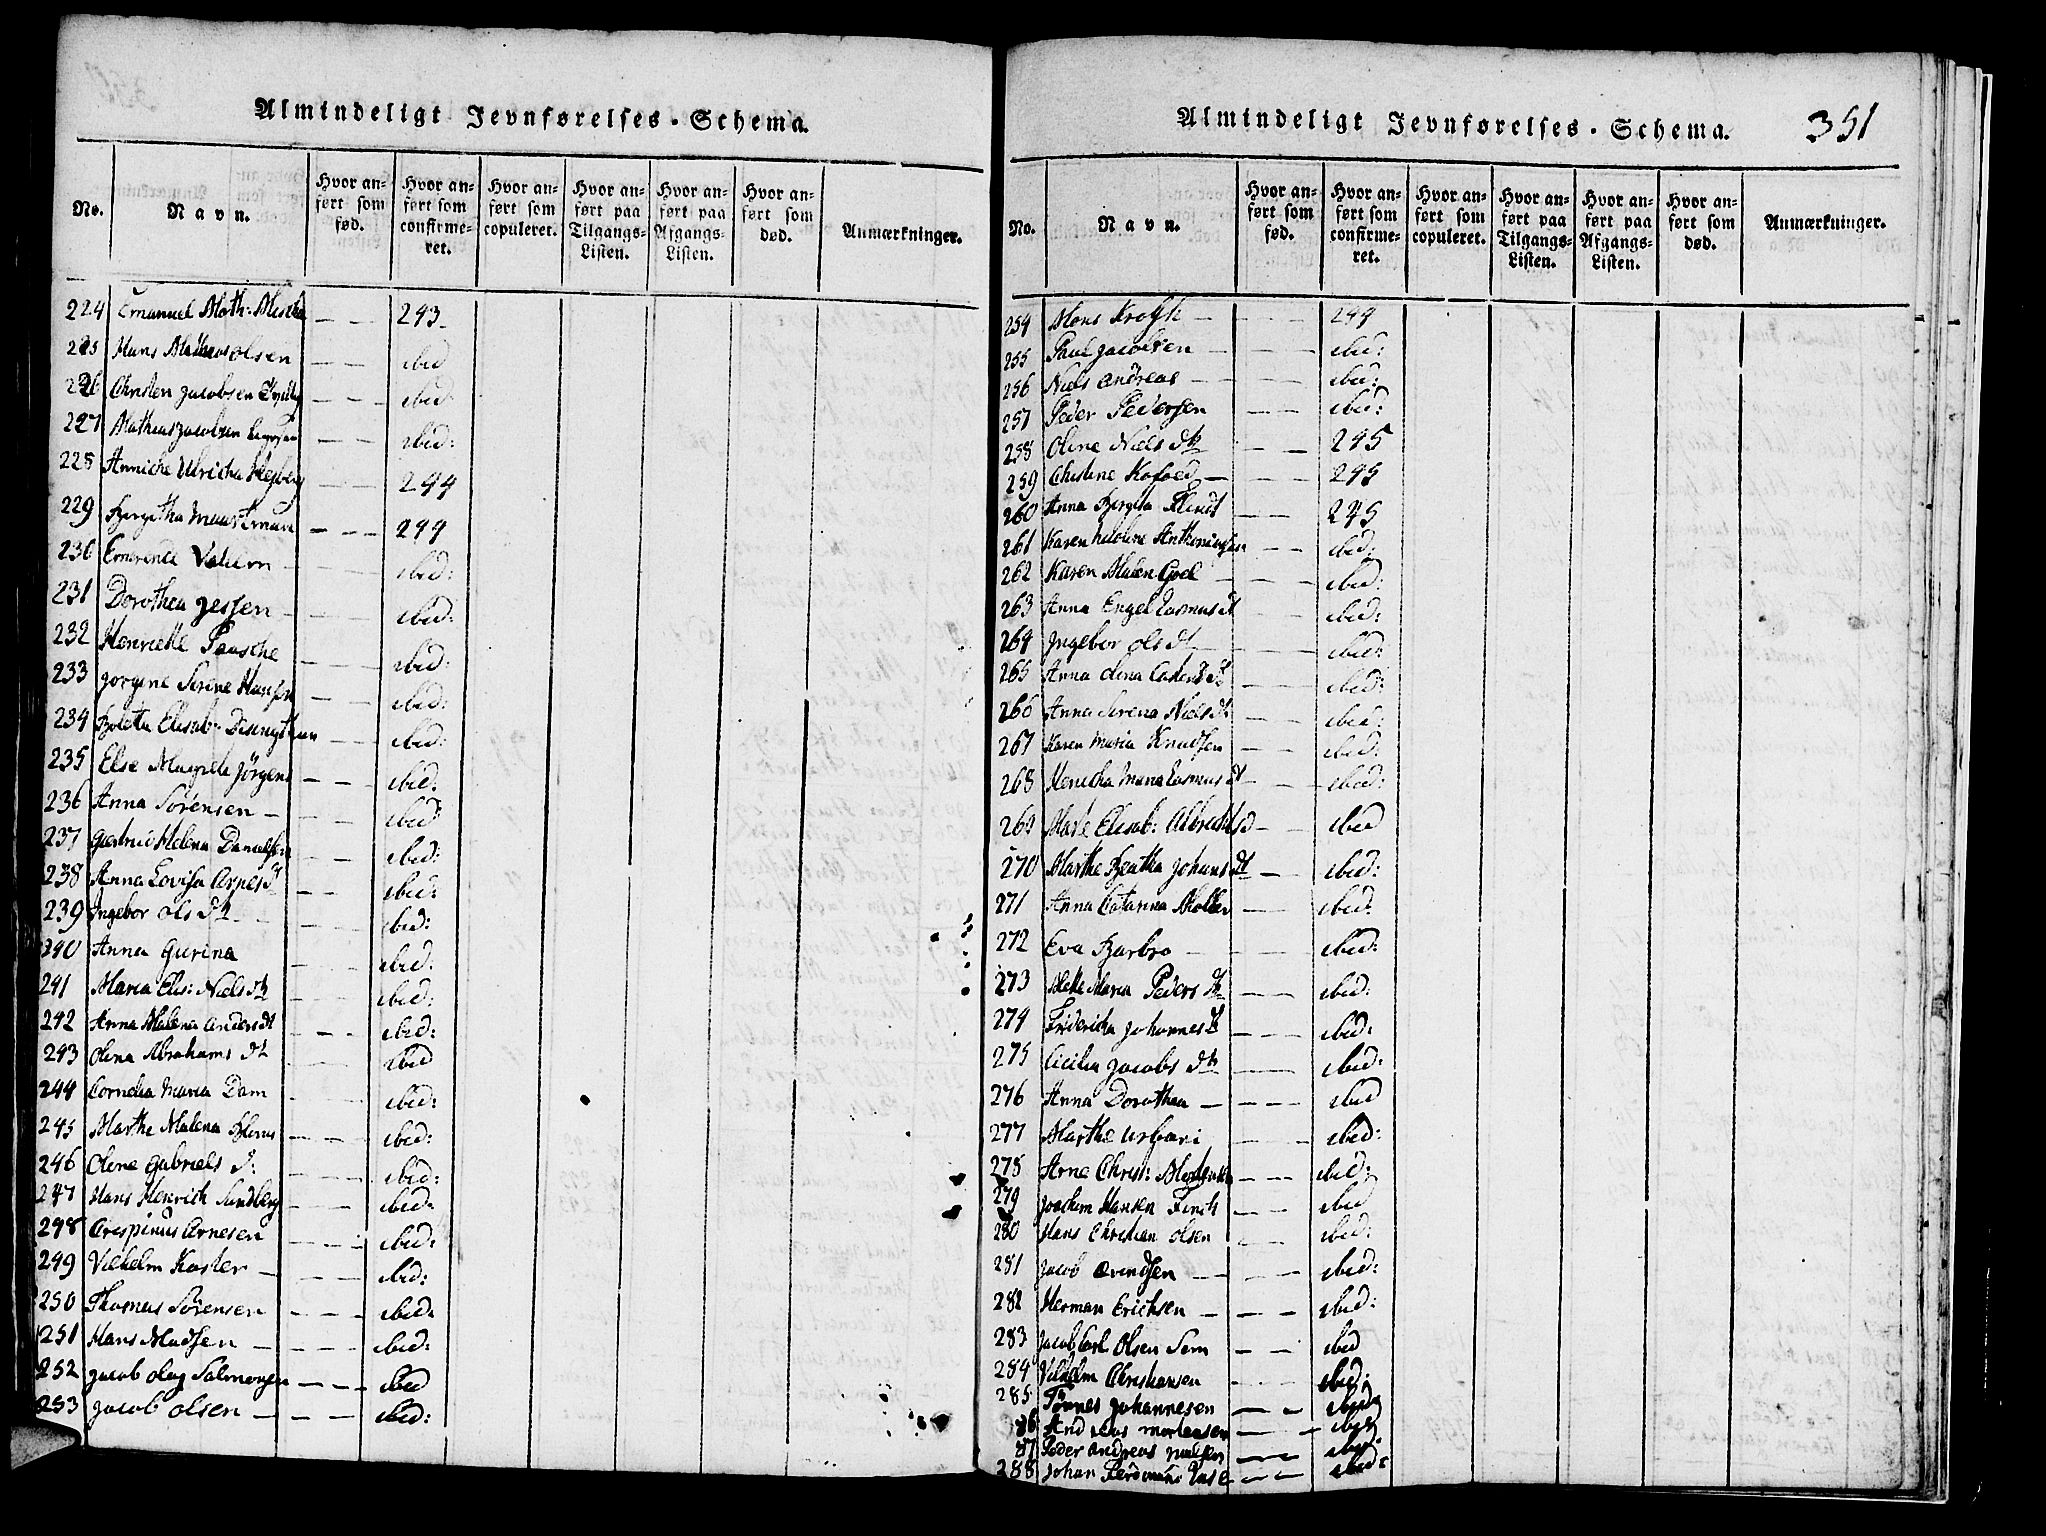 Almindeligt Jevnførelses-Schema.
No. Navn. Hvor anført som fød. Hvor anført som confirmeret. Hvor anført som copuleret. Hvor anført paa Tilgangs-Listen. Hvor anført paa Afgangs-Listen. Hvor anført som død. Anmærkninger.
224 Emanuel Math: — — 243
225 Hans Matheus olsen — — ibid
226 Christen Jacobsen — — ibid
227 Matheus Jacobsen — — ibid:
228 Anniche Ulricha — — 244
229 — — — 244
230 — — ibid:
231 Dorothea Jessen — — — ibid:
232 Henriette Paasche — — ibid:
233 Jorgine Serine Hansen — — ibid:
234 Boletta Elisab: — — ibid:
235 Else — — ibid:
236 Anna Sörensen — — — ibid
237 Gertrud Helena Danielsen — — ibid:
238 Anna Lovisa Arnes dt — — ibid:
239 Ingebor ols dt — — ibid:
240 Anna Gurina — — ibid:
241 Maria Elis: Niels dt — — ibid:
242 Anna Malena Anders dt — — ibid:
243 Olena Abrahams dt — — ibid
244 Cornelia Maria Dam — — ibid:
245 Marthe Malena — — ibid:
246 Olene Gabriels d: — — ibid:
247 Hans Henrich Sundberg — — ibid:
248 Crispinus Arnesen — — ibid:
249 Vilhelm Koster — — — ibid:
250 Thomas Sörensen — — — ibid:
251 Hans Madsen — — — ibid:
252 Jacob olaj Salmonsen — — ibid
253 Jacob olsen — — — ibid:
Almindeligt Jevnførelses-Schema. 351
No. Navn. Hvor anført som fød. Hvor anført som confirmeret. Hvor anført som copuleret. Hvor anført paa Tilgangs-Listen. Hvor anført paa Afgangs-Listen. Hvor anført som død. Anmærkninger.
254 Mons Krogh — — — 244
255 Paul Jacobsen — — — ibid:
256 Niels Andreas — — — ibid:
257 Peder Pedersen ibid:
258 Olene Niels dt — — 245
259 Christine Kofoed — — — 245
260 Anna — — 245
261 Karen — — ibid:
262 Karen Malen — — — ibid:
263 Anna Engel Rasmus dt ibid:
264 Ingebor ols dt — — ibid:
265 Anna Olena — — ibid:
266 Anna Serena Niels dt — — ibid:
267 Karen Maria Knudsen — — ibid:
268 Maria Rasmus dt — — ibid:
269 Marte Elisab: — — ibid
270 Marthe Johans dt — ibid:
271 Anna Catarina Möller — — ibid:
272 Eva Barbro — — — ibid:
273 Mette Maria Peders dt — — ibid:
274 Fridericha Johannes dt — — ibid:
275 Cicilia Jacobs dt — — ibid:
276 Anna Dorothea — — — ibid
277 Marthe — — ibid:
278 Arne Christ: — — ibid:
279 Joachim Hansen Finch — — ibid
280 Hans Christian Olsen — — ibid:
281 Jacob Evindsen — — — ibid:
282 Herman Erichsen — — — ibid:
283 Jacob Carl Olsen Sem — — ibid
284 Vilhelm Christiansen — — ibid:
285 Tönnes Johannesen — — ibid
86 Andreas Mortensen — — ibid
87 Peder Andreas — — ibid
288 Johan Ferdinand — — ibid: